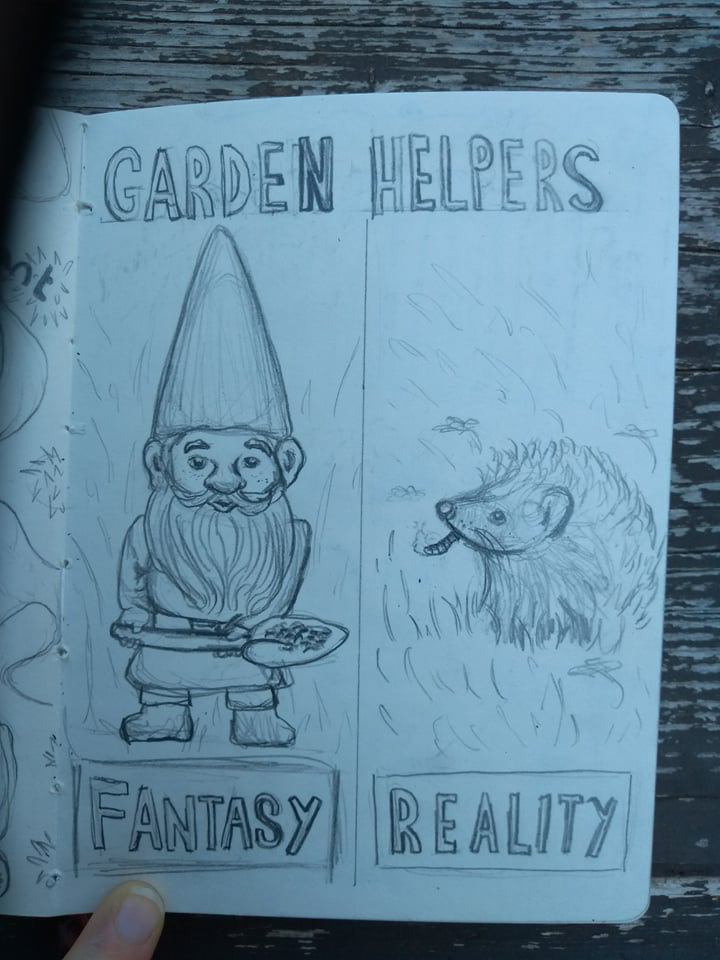 GARDEN HELPERS
FANTASY
REALITY